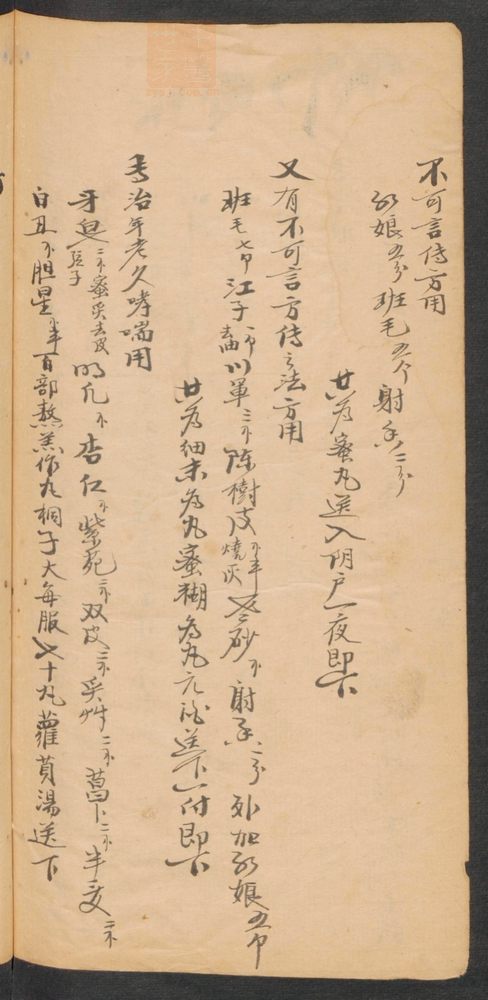 不可言传方用
红娘五分 班毛五个 射香二分
共为蜜丸送入阴户一夜即下
又有不可言方传之法方用
班毛七个 江子一个去油 川軍三个 陈樹皮个半燒灰 砂个 射香二分 外加红娘五个
共为细末为丸蜜糊为丸元酒送下一付即下
专治年老久哮喘用
牙皂二个蜜炙去皮弦子 明凡个 杏仁个 紫苑二个 双皮二个 炙艸二个 蒌卜二个 半夏二个
白丑个 胆星个半 百部熬羔作丸桐子大每服七十丸蘿蔔湯送下